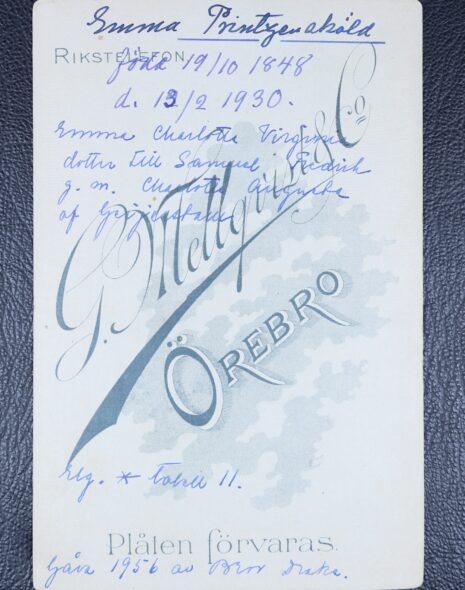 Emma Printzensköld
RIKSTELEFON
född 19/10 1848
d. 13/2 1930.
Emma Charlotte Virginia
dotter till Samuel Fredrik
g. m. Charlotte Augusta
af
G. Mellqvist & Co
ÖREBRO
Elg. * tabell 11.
Plåten förvaras.
Gåva 1956 av Bror